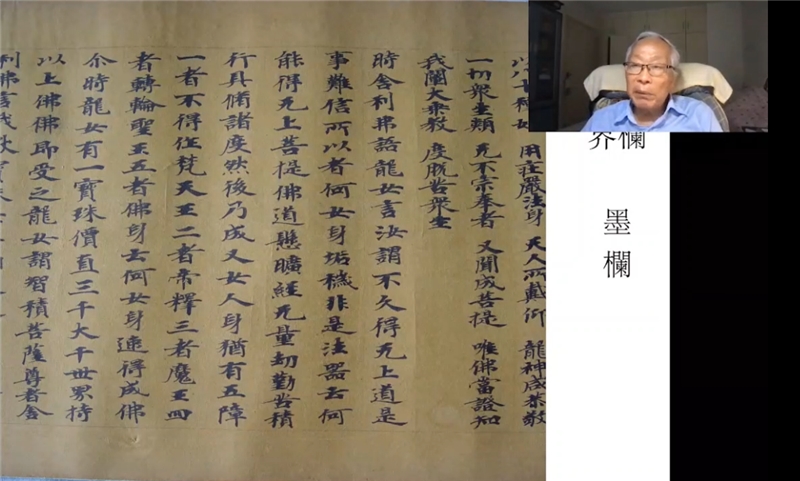 界欄
墨欄
用莊嚴法身 天人所戴仰 龍神咸恭敬
一切衆生類 无不宗奉者 又聞成菩提 唯佛當證知
我闡大乘教 度脫苦衆生
時舍利弗語龍女言汝謂不久得无上道是
事難信所以者何女身垢穢非是法器云何
能得无上菩提佛道懸曠經无量劫勤苦積
行具脩諸度然後乃成又女人身猶有五障
一者不得作梵天王二者帝釋三者魔王四
者轉輪聖王五者佛身云何女身速得成佛
尒時龍女有一寶珠價直三千大千世界持
以上佛佛即受之龍女謂智積菩薩尊者舍
利弗言我獻寶珠